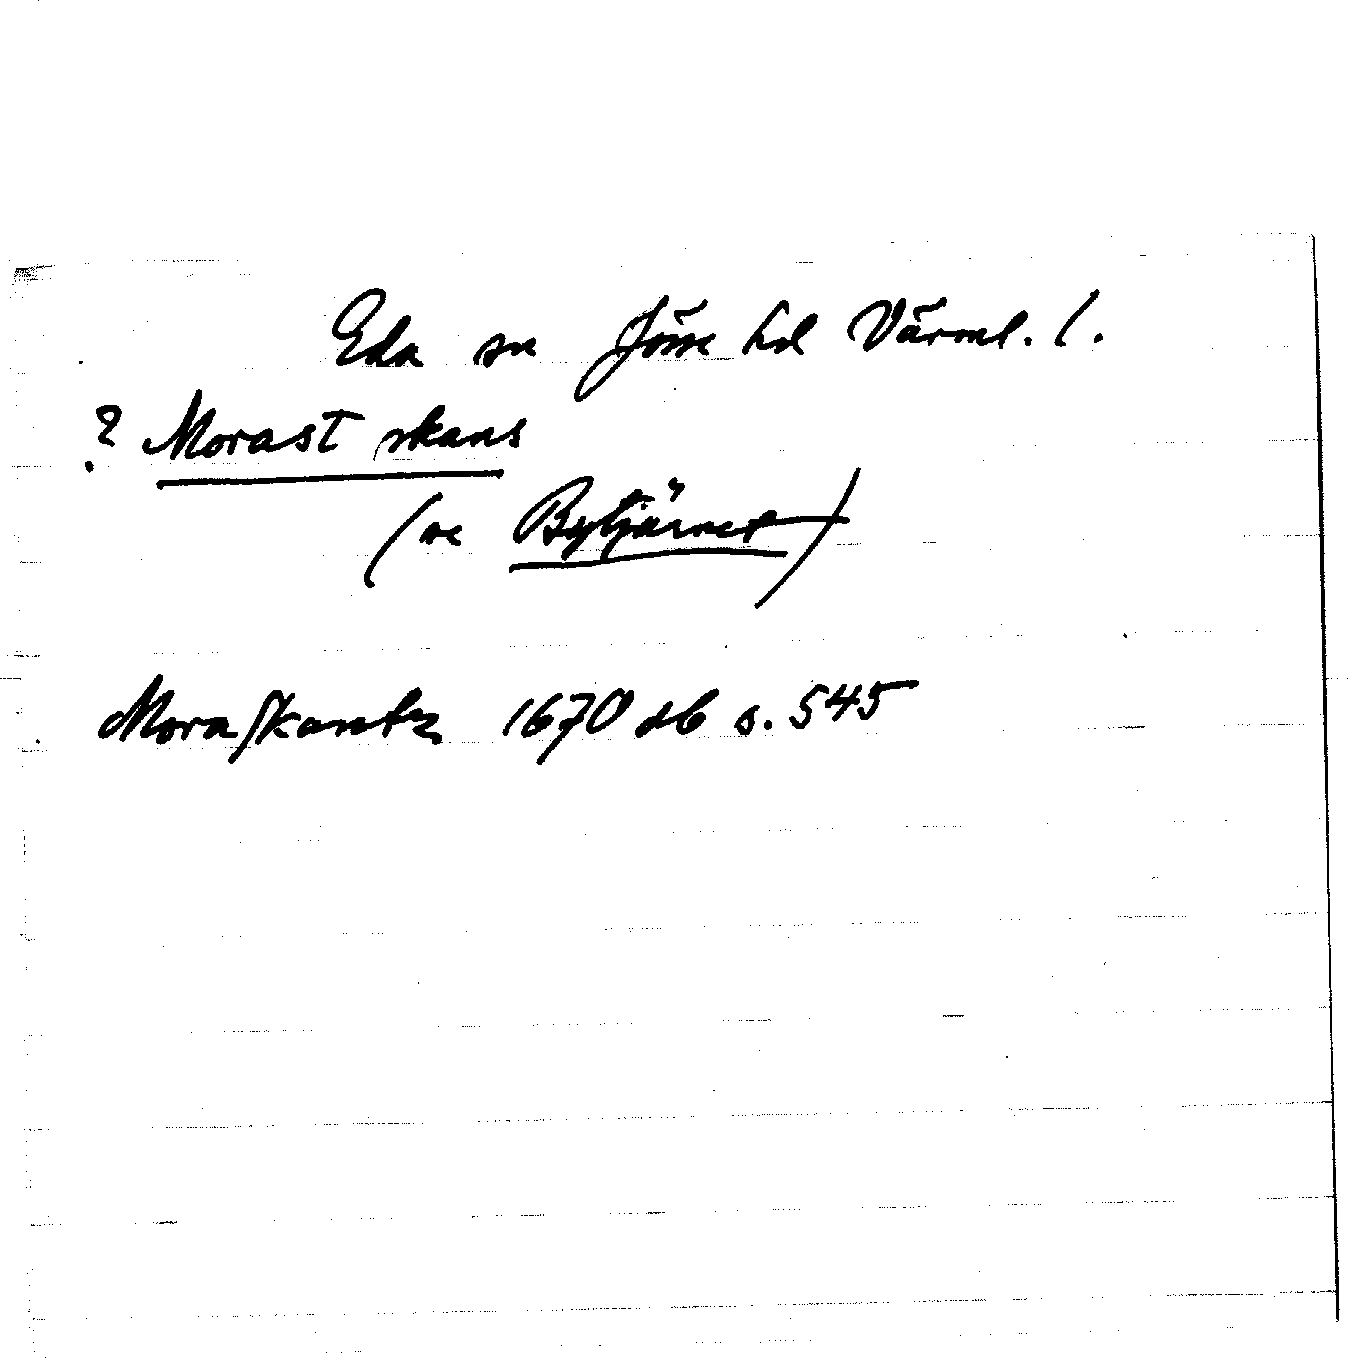 Eda sn Jösse hd Värml. l.
? Morast skans
(se Bytjärnet)
Moraſkantz 1670 db s. 545